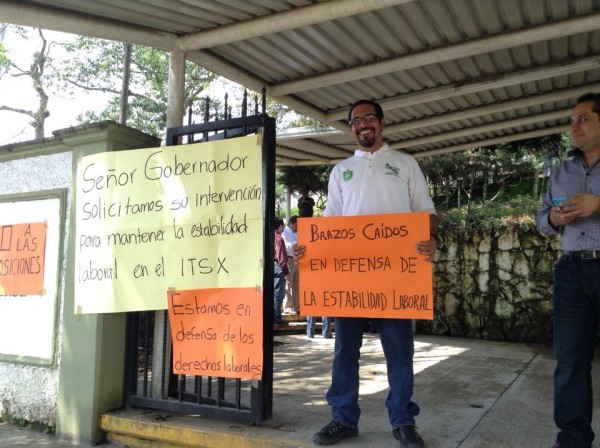 O A LAS
OSICIONES
Señor Gobernador
solicitamos su intervención
para mantener la estabilidad
laboral en el ITSX
Estamos en
defensa de los
derechos laborales
BRAZOS CAÍDOS
EN DEFENSA DE
LA ESTABILIDAD LABORAL